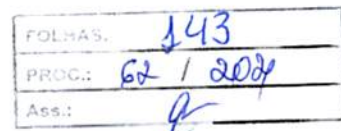 FOLHAS: 143
PROC.: 62 / 2024
Ass.: